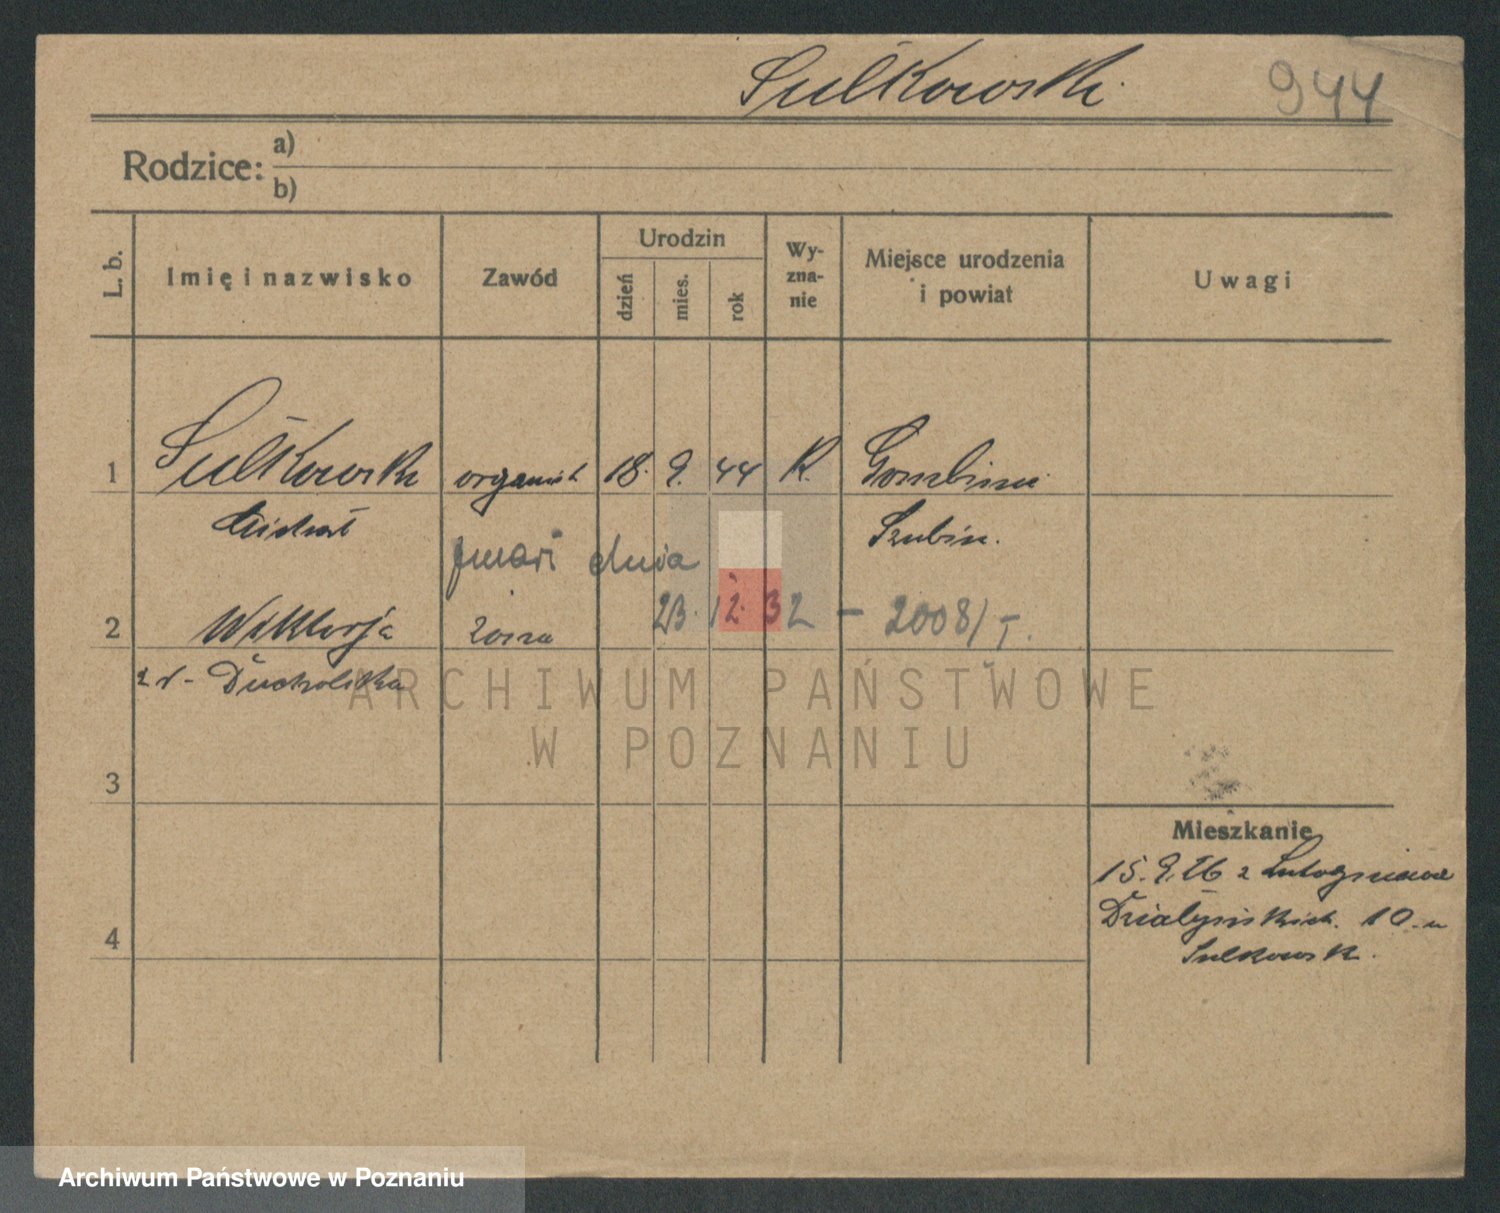 Sulkowski
944
Rodzice: a)
b)
L. b.
Imię i nazwisko
Zawód
Urodzin
dzień
mies.
rok
Wy-
zna-
nie
Miejsce urodzenia
i powiat
Uwagi
1 Sulkowski organist 18. 9. 44 K.
Michał Szubin.
zmarł dnia
23. 12. 32 - 2008/I.
2 Wiktorja żona
z d- Ducholska
ARCHIWUM PAŃSTWOWE
W POZNANIU
3
Mieszkanie
15. 9. 26 z
Działyńskich. 10. u
Sulkowsk.
4
Archiwum Państwowe w Poznaniu